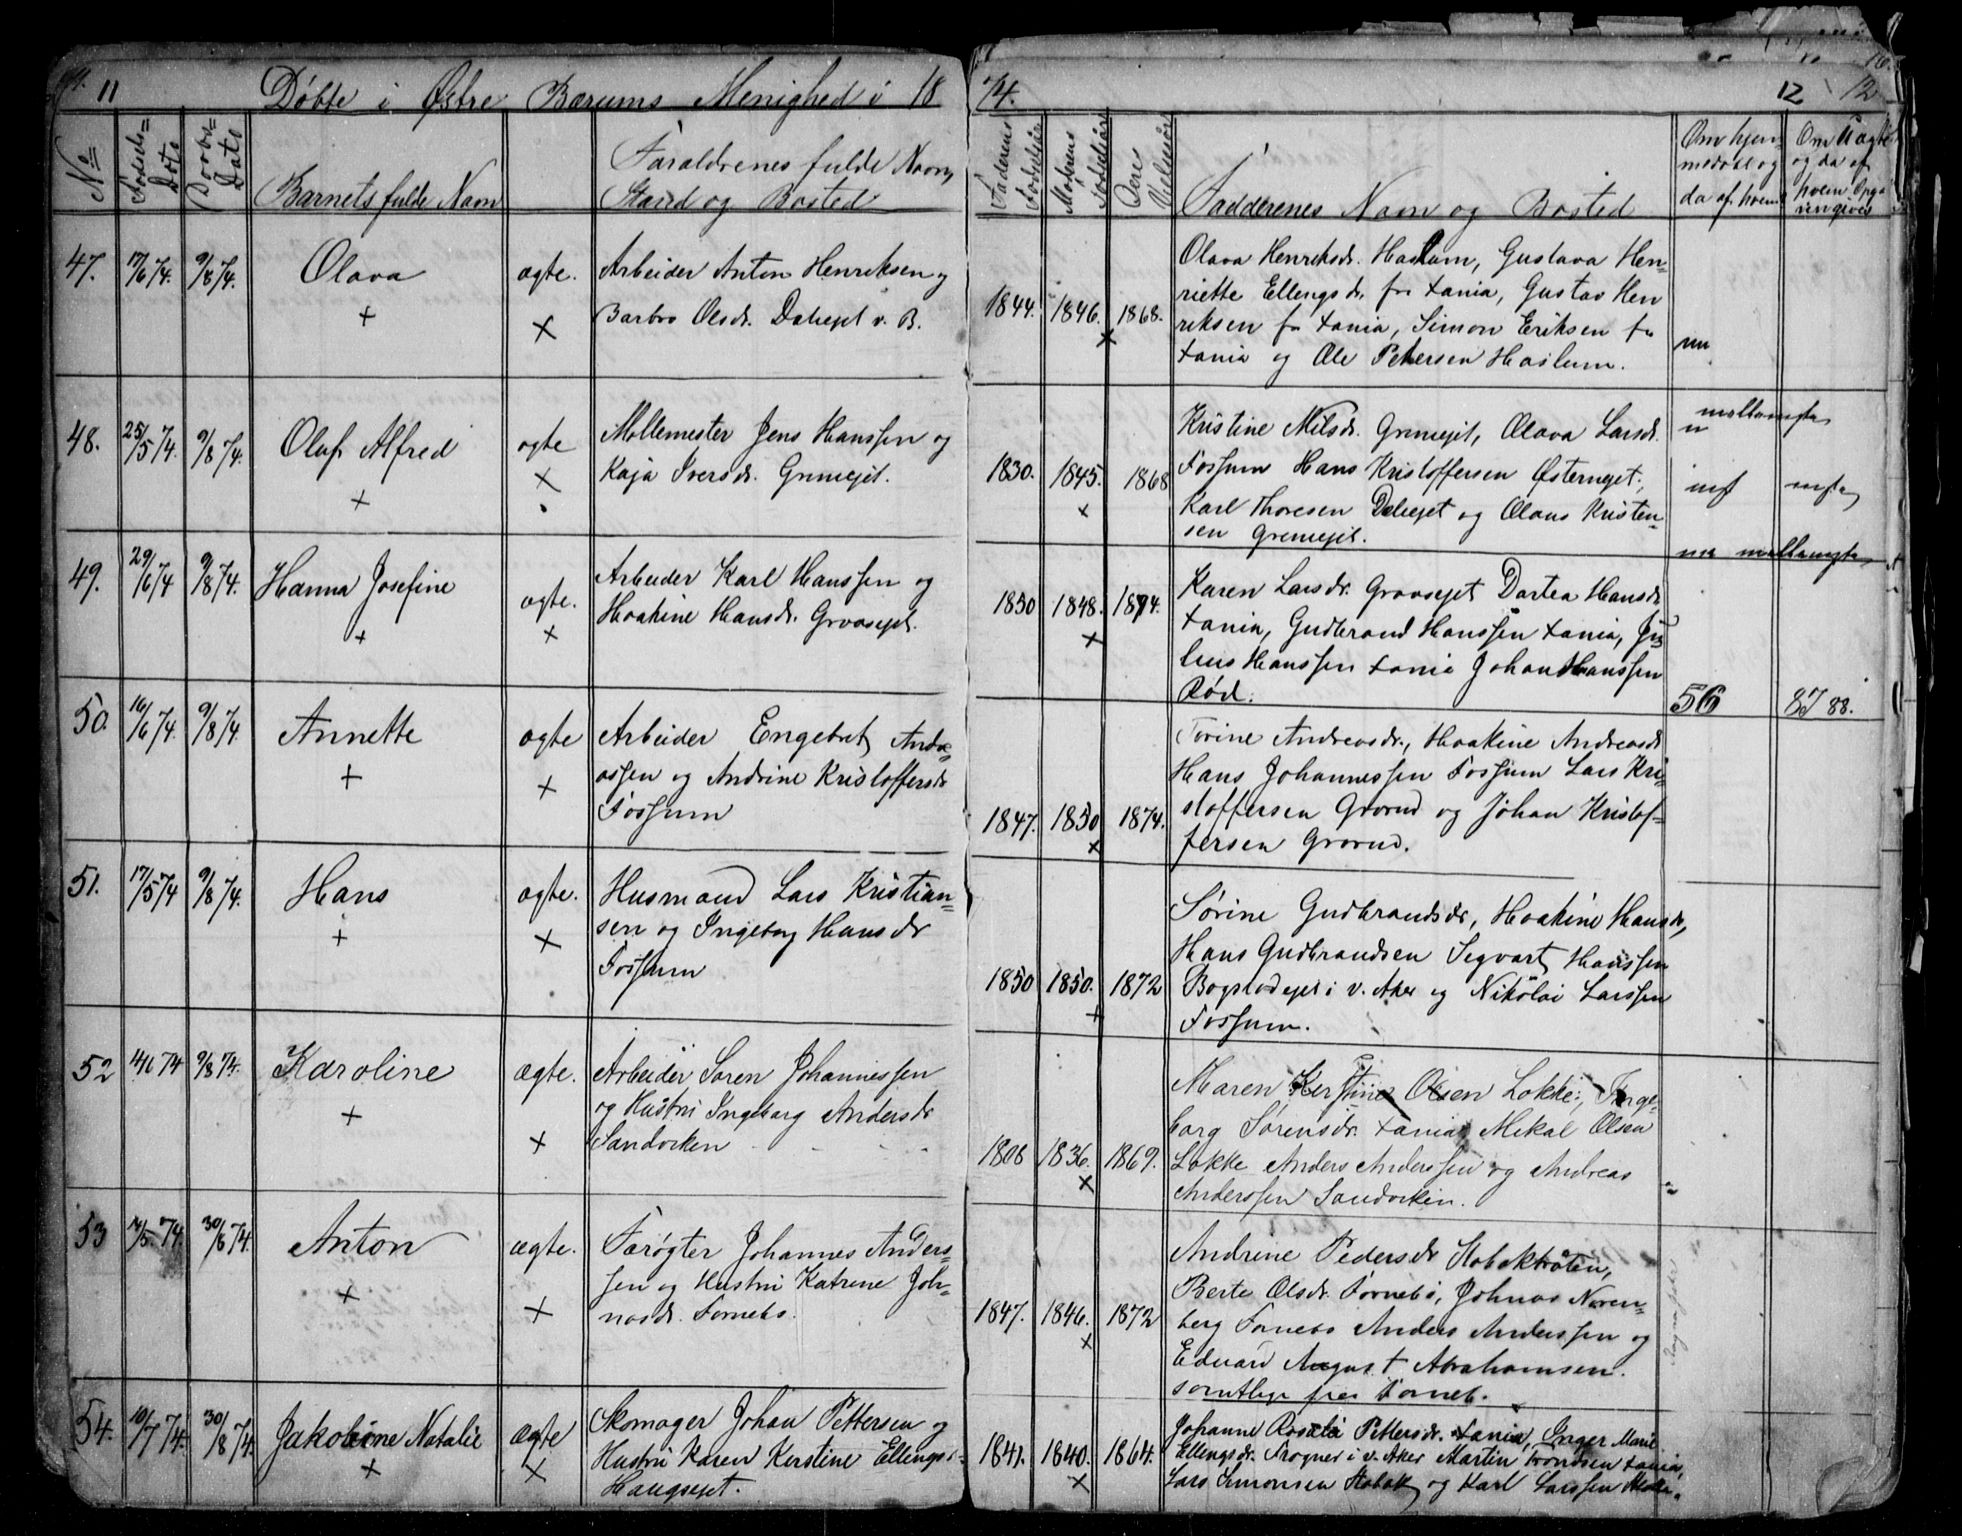 11
Døbte i Østre Bærums Menighed i 18
74.
12
12
No
Fødsels= Dato
Daabs= Dato
Barnets fulde Navn
Foræeldrenes fulde Navn,
Stand og Bosted
Faderens Fødselsaar
Moderens Fødselsaar
Deres
Faddernes Navn og Bosted
Om hjem-
medøbt og
da af hvem
og da af
hvem
47.
17/6 74.
9/8 74.
Olava
+
ægte.
×
Arbeider Anton Henriksen og
Barbro Olsdr. Dalsejet v. B.
1844.
1846.
×
1868.
Olava Henriksdr. Haslum, Gustava Hen=
riette Ellengsdr. fr Tania, Gustav Hen
riksen fr Tania, Simon Eriksen fr
Tania og Ole Petersen Haslum.
48.
25/5 74.
9/8 74.
Oluf Alfred
+
ægte
×
Møllemester Jens Hanssen og
Kaja Iversdr. Griniejet.
1830.
1845.
×
1868
Kristine Nilsdr. Griniejet, Olava Larsdr.
Fossum Hans Kristoffersen Østernejet.,
Karl Thoresen Dalsejet og Olaus Kristen=
sen Griniejet.
49.
29/6 74
9/8 74.
Hanna Josefine
+
ægte.
×
Arbeider Karl Hanssen og
Haakine Hansdr. Gravsejet.
1850
1848.
×
1874.
Karen Larsdr. Gravsejet Dortea Hansdr
Tania, Gudbrand Hanssen Tania, Ju=
lius Hanssen Tania Johan Hanssen
Rød.
56
87 88.
50.
16/6 74.
9/8 74.
Annette
+
ægte
×
Arbeider Engebret Andre=
assen og Andrine Kristoffersdr
Fossum
1847.
1850
×
1874.
Torine Andreasdr., Haakine Andreasdr
Hans Johannessen Fossum Lars Kri=
stoffersen Grorud og Johan Kristof=
fersen Grorud.
51.
17/5 74
9/8 74.
Hans
+
ægte.
×
Husmand Lars Kristian=
sen og Ingeborg Hansdr
Fossum
1850
1850.
+
1872
Sørine Gudbrandsdr, Haakine Hansdr,
Hans Gudbrandsen Segvart Hanssen
Bogstadejet i v. Aker og Nikolai Larssen
Fossum.
52
4/6 74
9/8 74.
Karoline
+
ægte.
×
Arbeider Søren Johannessen
og Hustru Ingeborg Andersdr
Sandviken
1836.
×
1869.
Maren Kerstine Olsen Løkke, Inge=
borg Sørensdr. Tania Mikal Olsen
Løkke Anders Anderssen og Andreas
Anderssen Sandviken.
53
74.
30/8 74.
Anton
+
ægte.
×
Farøgter Johannes Anders=
sen og Hustru Katrine Joh=
nasdr. Fornebo.
1847.
1846.
×
1872
Andrine Pedersdr Stabækbråten,
Berte Olsdr. Fornebo, Johnas Noren=
berg Fornebo Anders Anderssen og
Eduard August Abrahamsen.
samtlige fra Forneb.
54.
10/7 74.
30/8 74.
Jakobine Natalie
+
ægte
×
Skomager Johan Pettersen og
Hustru Karen Kerstine Ellengsd.
Haugsejet.
1841.
1840.
×
1864.
Johanne Rosalia Pettersdr. Tania, Inger Marie
Ellengsdr. Frogner i v. Aker Martin Trondsen Tania,
Lars Simonsen Stabæk og Karl Larssen